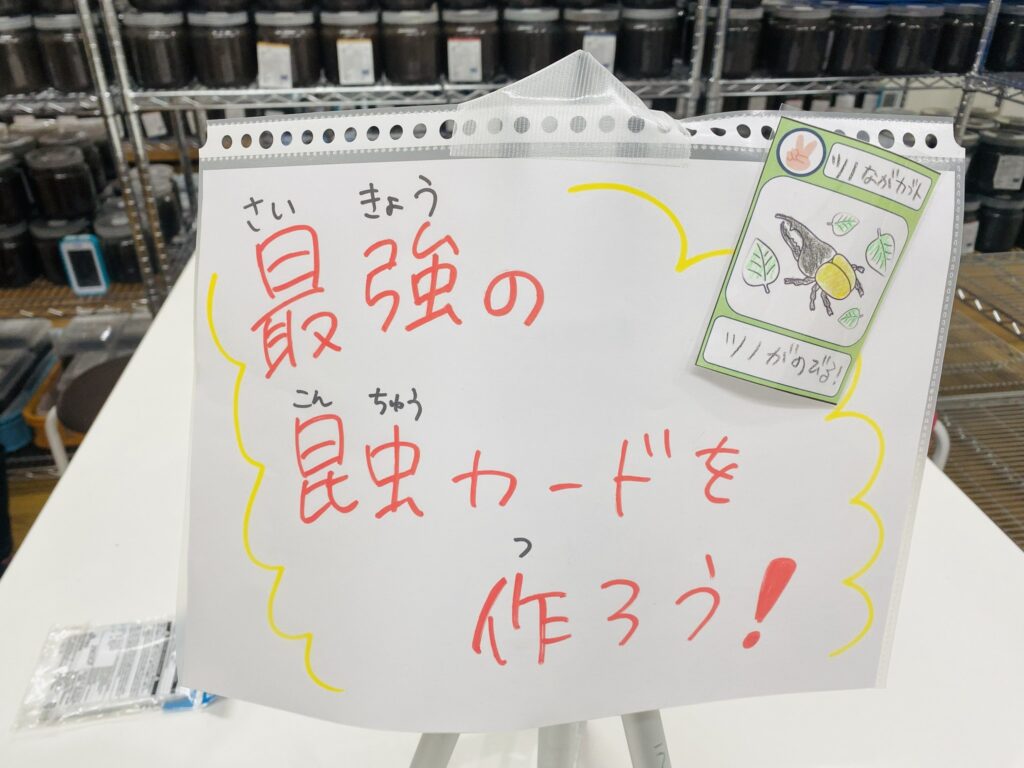 さい きょう
最強の
こん ちゅう
昆虫カードを
つ
作ろう!
ツノながガト
ツノがのびる!